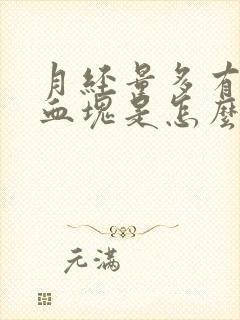 月经量多有
血塊是怎麼
元满